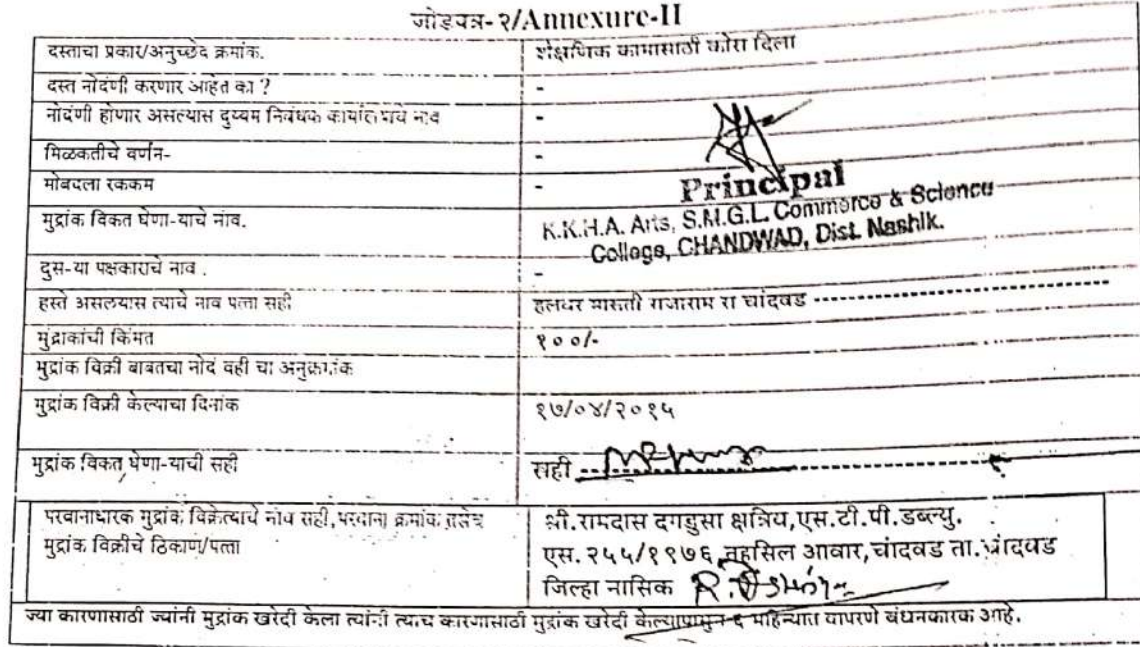 जोडपत्र-२/Annexure-II
दस्ताचा प्रकार/अनुच्छेद क्रमांक. शैक्षणिक कामासाठी कोरा दिला
दस्त नोदंणी करणार आहेत का ? -
नोदंणी होणार असल्यास दुय्यम निबंधक कार्यालयाचे नाव -
मिळकतीचे वर्णन- -
मोबदला रककम -
Principal
मुद्रांक विकत घेणा-याचे नांव. K.K.H.A. Arts, S.M.G.L. Commerce & Science
College, CHANDWAD, Dist. Nashik.
दुस-या पक्षकाराचे नाव . -
हस्ते असलयास त्याचे नाव पत्ता सही हलवर मारुती राजाराम रा चांदवड
मुंद्राकांची किंमत १००/-
मुद्रांक विक्री बाबतचा नोदं वही चा अनुक्रमांक
मुद्रांक विक्री केल्याचा दिनांक १७/०४/२०१५
मुद्रांक विकत घेणा-याची सही सही
परवानाधारक मुद्रांक विक्रेत्याचे नांव सही,परवाना क्रमांक तसेच श्री.रामदास दगडुसा क्षत्रिय,एस.टी.पी.डब्ल्यु.
मुद्रांक विक्रीचे ठिकाण/पत्ता एस.२५५/१९७६,तहसिल आवार,चांदवड ता.चांदवड
जिल्हा नासिक
ज्या कारणासाठी ज्यांनी मुद्रांक खरेदी केला त्यांनी त्याच कारणासाठी मुद्रांक खरेदी केल्यापासुन ६ महिन्यात वापरणे बंधनकारक आहे.